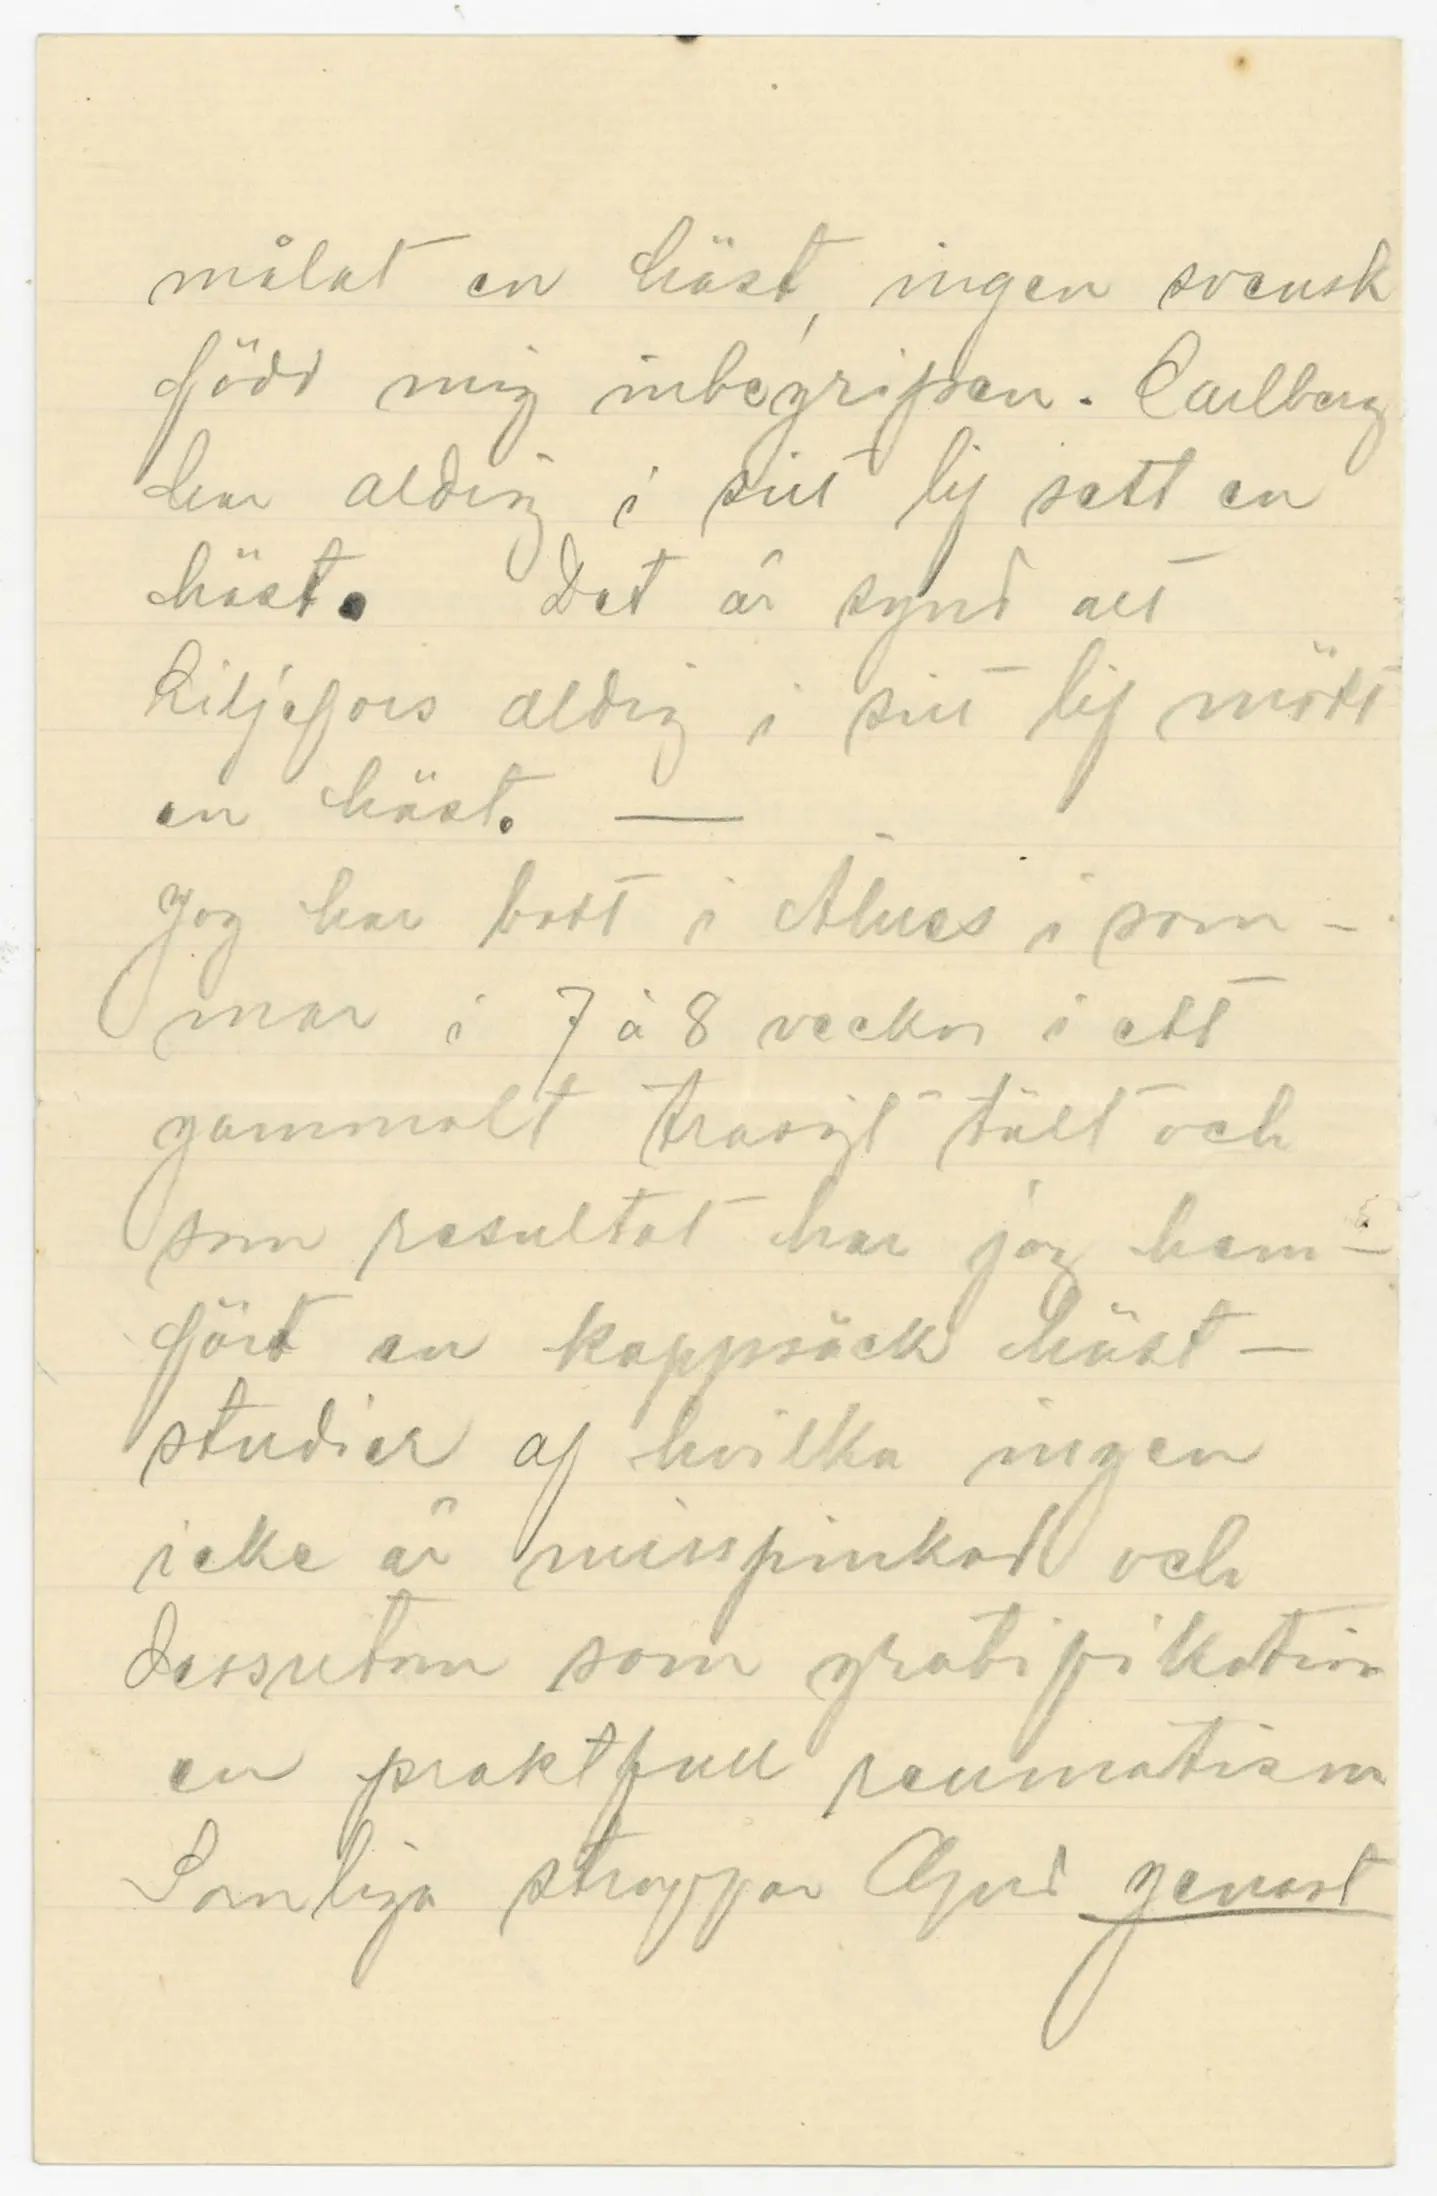 målat en häst, ingen svensk
född mig inbegripen. Carlberg
har aldrig i sitt lif sett en
häst. Det är synd att
Liljefors aldrig i sitt lif mött
en häst. —
Jag har bott i Alnäs i som-
mar i 7 à 8 veckor i ett
gammalt trasigt tält och
som resultat har jag hem-
fört en kappsäck häst-
studier af hvilka ingen
icke är misspinkad och
dessutom som gratifikation
en praktfull reumatism
Somliga stroppar Gud genast